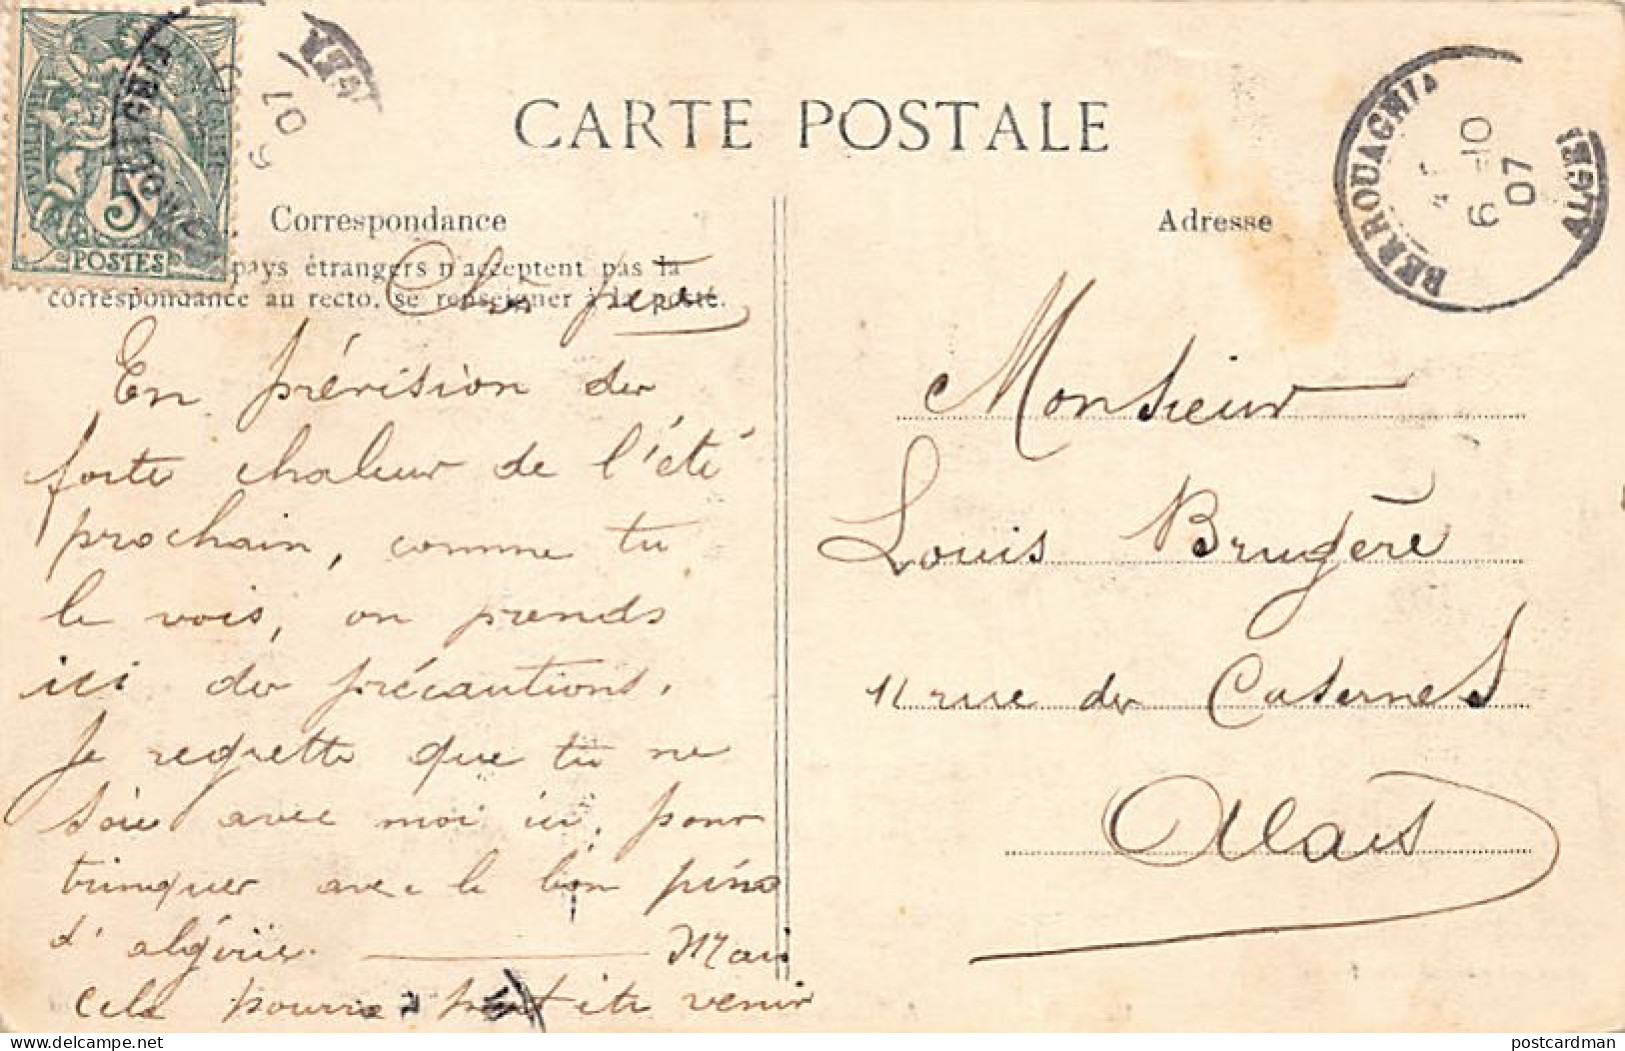 CARTE POSTALE
Correspondance
pays étrangers n'acceptent pas la
correspondance au recto. se renseigner à la poste.
Cher frère
En prévision des
forte chaleur de l'été
prochain, comme tu
le vois, on prends
ici des précautions.
Je regrette que tu ne
soie avec moi ici, pour
trinquer avec le bon pinard
d'algérie. Mais
cela pourra peut etre venir
Adresse
Monsieur
Louis Brugère
11 rue des Casernes
Alais
BERROUAGHIA
6 -10
07
ALGER
5
POSTES
10
07
6
delcampe.net
postcardman